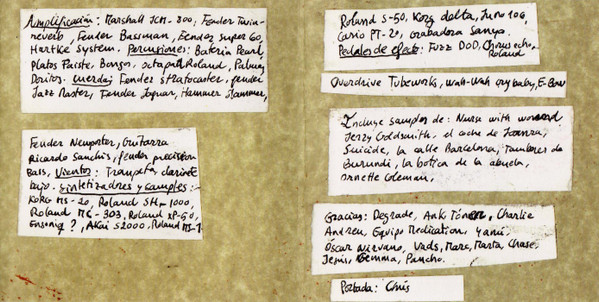 Amplificación: Marshall JCM-800, Fender Twin-
reverb, Fender Bassman, Fender super 60,
Hartke System. Percusiones: Batería Pearl,
Platos Paiste, Bongos, octapad Roland, Palmas,
Doritos. Cuerdas: Fender stratocaster, fender
Jazz Master, Fender Jaguar, Hammer Slammer,
Fender Newporter, Guitarra
Ricardo Sanchis, fender precision
Bass, Vientos: Trompeta, clarinete
bajo. Sintetizadores y samplers:
KORG MS-20, Roland SH-1000,
Roland MC-303, Roland XP-50,
Ensoniq ?, AKai S2000, Roland MS-1
Roland S-50, Korg delta, Juno 106,
Casio PT-20, Grabadora Sanyo.
Pedales de efecto: Fuzz DOD, Chorus echo,
Roland
Overdrive Tubeworks, wah-wah crybaby, E-Bow
Incluye samples de: Nurse with wound
Jerzy Goldsmith, el ache de
Suicide, la calle Barcelona, Tambores de
Burundi, la botica de la abuela,
Ornette Coleman,
Gracias: Degrade, Ankitoner, Charlie
Andreu, Equipo Medication, Yami,
Óscar Nirvano, Vads, Marc, Marta, Chase,
Jesús, Gemma, Pancho.
Portada: Chris